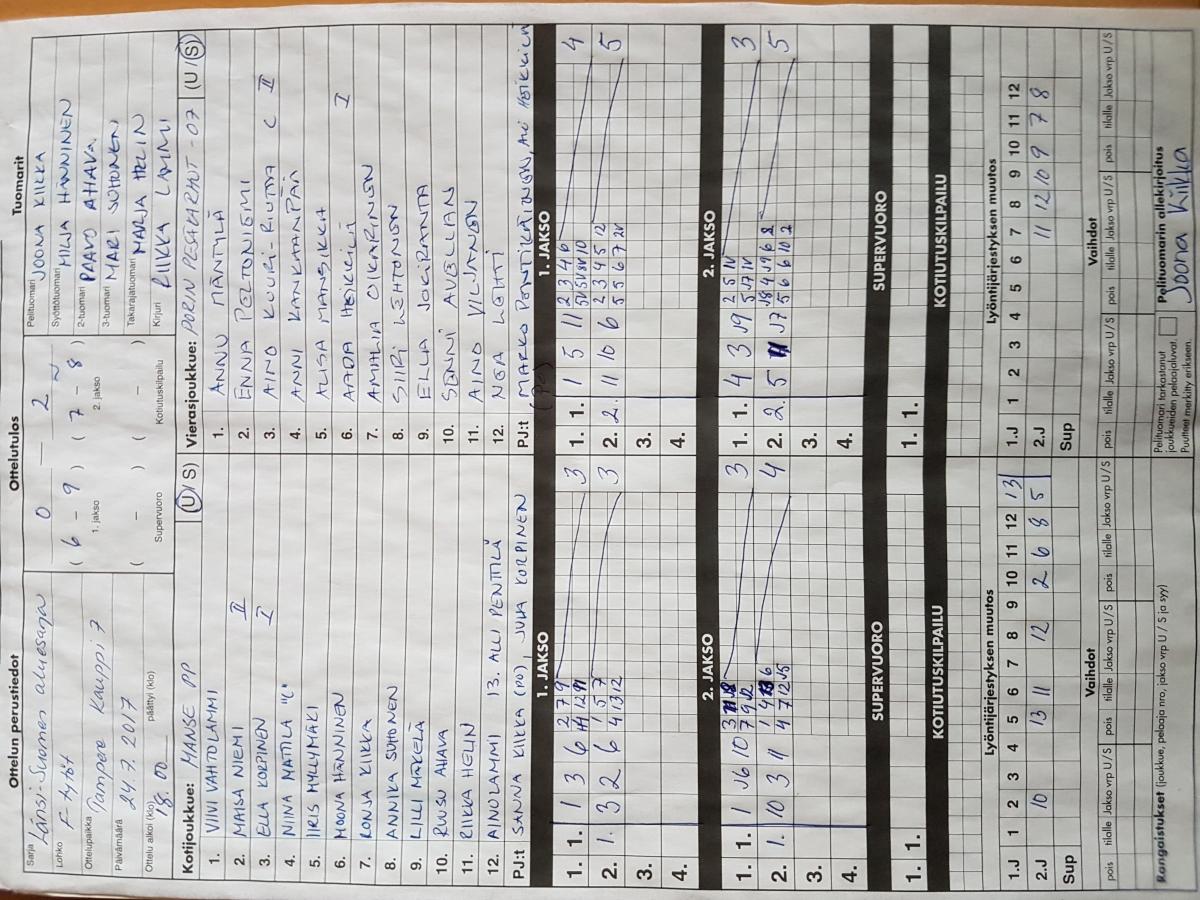 Ottelun perustiedot
Sarja Länsi-Suomen aluesarja
Lohko F-tytöt
Ottelupaikka Tampere Kauppi 7
Päivämäärä 24.7.2017
Ottelu alkoi (klo) 18.00 päättyi (klo)
Ottelutulos
0 – 2
( 6 – 9 ) ( 7 – 8 )
1. jakso 2. jakso
( – ) ( – )
Supervuoro Kotiutuskilpailu
Tuomarit
Pelituomari JOONA KIIKKA
Syöttötuomari HILJA HÄNNINEN
2-tuomari PAAVO AHAVA
3-tuomari MARI SUHONEN
Takarajatuomari MARJA HELIN
Kirjuri RIIKKA LAMMI
Kotijoukkue: MANSE PP (U / S)
1. VIIVI VAHTOLAMMI
2. MAISA NIEMI II
3. ELLA KORPINEN I
4. NIINA MATTILA "C"
5. IIRIS MYLLYMÄKI
6. MOONA HÄNNINEN
7. RONJA KIIKKA
8. ANNIKA SUHONEN
9. LILLI MÄKELÄ
10. RUUSU AHAVA
11. RIIKKA HELIN
12. AINO LAMMI 13. ALLI PENTTILÄ
PJ:t SANNA KIIKKA (PJ), JUHA KORPINEN
Vierasjoukkue: PORIN PESÄKARHUT -07 (U / S)
1. ANNU MÄNTYLÄ
2. EENNA PELTONIEMI
3. AINO KUURI-RIUTTA C II
4. ANNI KANKAANPÄÄ
5. ALISA MANSIKKA
6. AADA HEIKKILÄ I
7. AMALIA OIKARINEN
8. SIIRI LEHTONEN
9. EILLA JOKIRANTA
10. SENNI AVELLAN
11. AINO VILJANEN
12. NEA LEHTI
PJ:t MARKO PENTIKÄINEN,
1. JAKSO
1. 1. 1 3 6 3
2. 1. 3 2 6 3
3.
4.
1. JAKSO
1. 1. 1 5 11 4
2. 2. 11 10 6 5
3.
4.
2. JAKSO
1. 1. 1 10 3
2. 1. 10 3 11 4
3.
4.
2. JAKSO
1. 1. 4 3 3
2. 2. 5 5
3.
4.
SUPERVUORO
1. 1.
1. 1.
KOTIUTUSKILPAILU
Lyöntijärjestyksen muutos
1.J 1 2 3 4 5 6 7 8 9 10 11 12 13
2.J 10 13 11 12 2 6 8 5
Sup
Lyöntijärjestyksen muutos
1.J 1 2 3 4 5 6 7 8 9 10 11 12
2.J 11 12 10 9 7 8
Sup
Vaihdot
pois tilalle Jakso vrp U / S pois tilalle Jakso vrp U / S pois tilalle Jakso vrp U / S pois tilalle Jakso vrp U / S
Vaihdot
pois tilalle Jakso vrp U / S pois tilalle Jakso vrp U / S pois tilalle Jakso vrp U / S
Rangaistukset (joukkue, pelaaja nro, jakso vrp U / S ja syy)
Pelituomari tarkastanut
joukkueiden pelaajaluvat.
Puutteet merkitty erikseen.
Pelituomarin allekirjoitus
Joona Kiikka